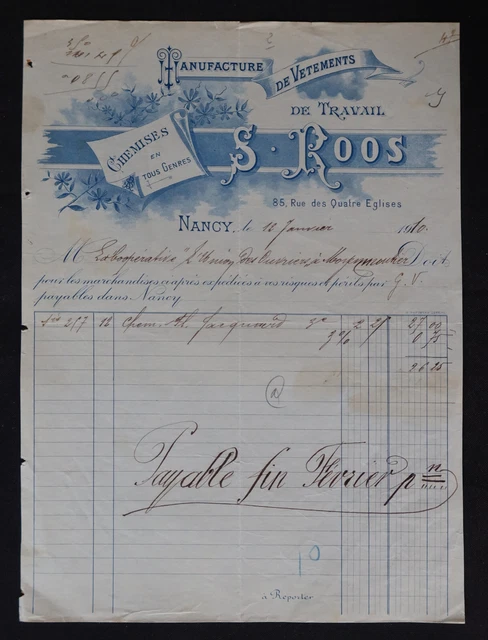 MANUFACTURE
DE VÊTEMENTS
DE TRAVAIL
CHEMISES
EN
TOUS GENRES
S. ROOS
85, Rue des Quatre Eglises
NANCY, le 12 Janvier 1910.
M La Coopérative "L'Union des Ouvriers" à Doit
pour les marchandises ci-après expédiées à vos risques et périls par G. V.
payables dans Nancy
257 12 Chem. 2 25 27 00
3% 0 75
26.25
a
Payable fin Février p
10
à Reporter